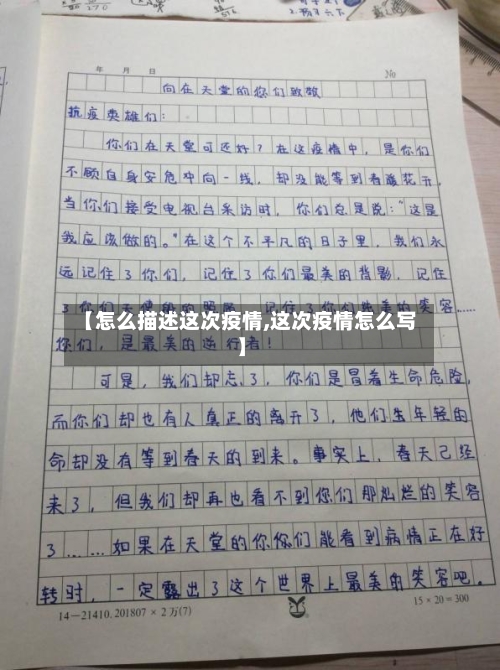 年 月 日 No
向在天堂的您们致敬
抗疫英雄们：
你们在天堂可还好？在这疫情中，是你们
不顾自身安危冲向一线，却没能等到春暖花开，
当你们接受电视台采访时，你们总是说："这是
我应该做的。"在这个不平凡的日子里，我们永
远记住了你们，记住了你们最美的背影，记住
了你们
笑容……
【怎么描述这次疫情,这次疫情怎么写
】
您们，是最美的逆行者！
可是，我们却忘了，你们是冒着生命危险，
而你们却也有人真正的离开了，他们年轻的
命却没有等到春天的到来。事实上，春天已经
来了，但我们却再也看不到你们那灿烂的笑容
了……如果在天堂的你你们能看到病情正在好
转时，一定露出了这个世界上最美的笑容吧。
14—21410.201807×2万(7)
15×20=300